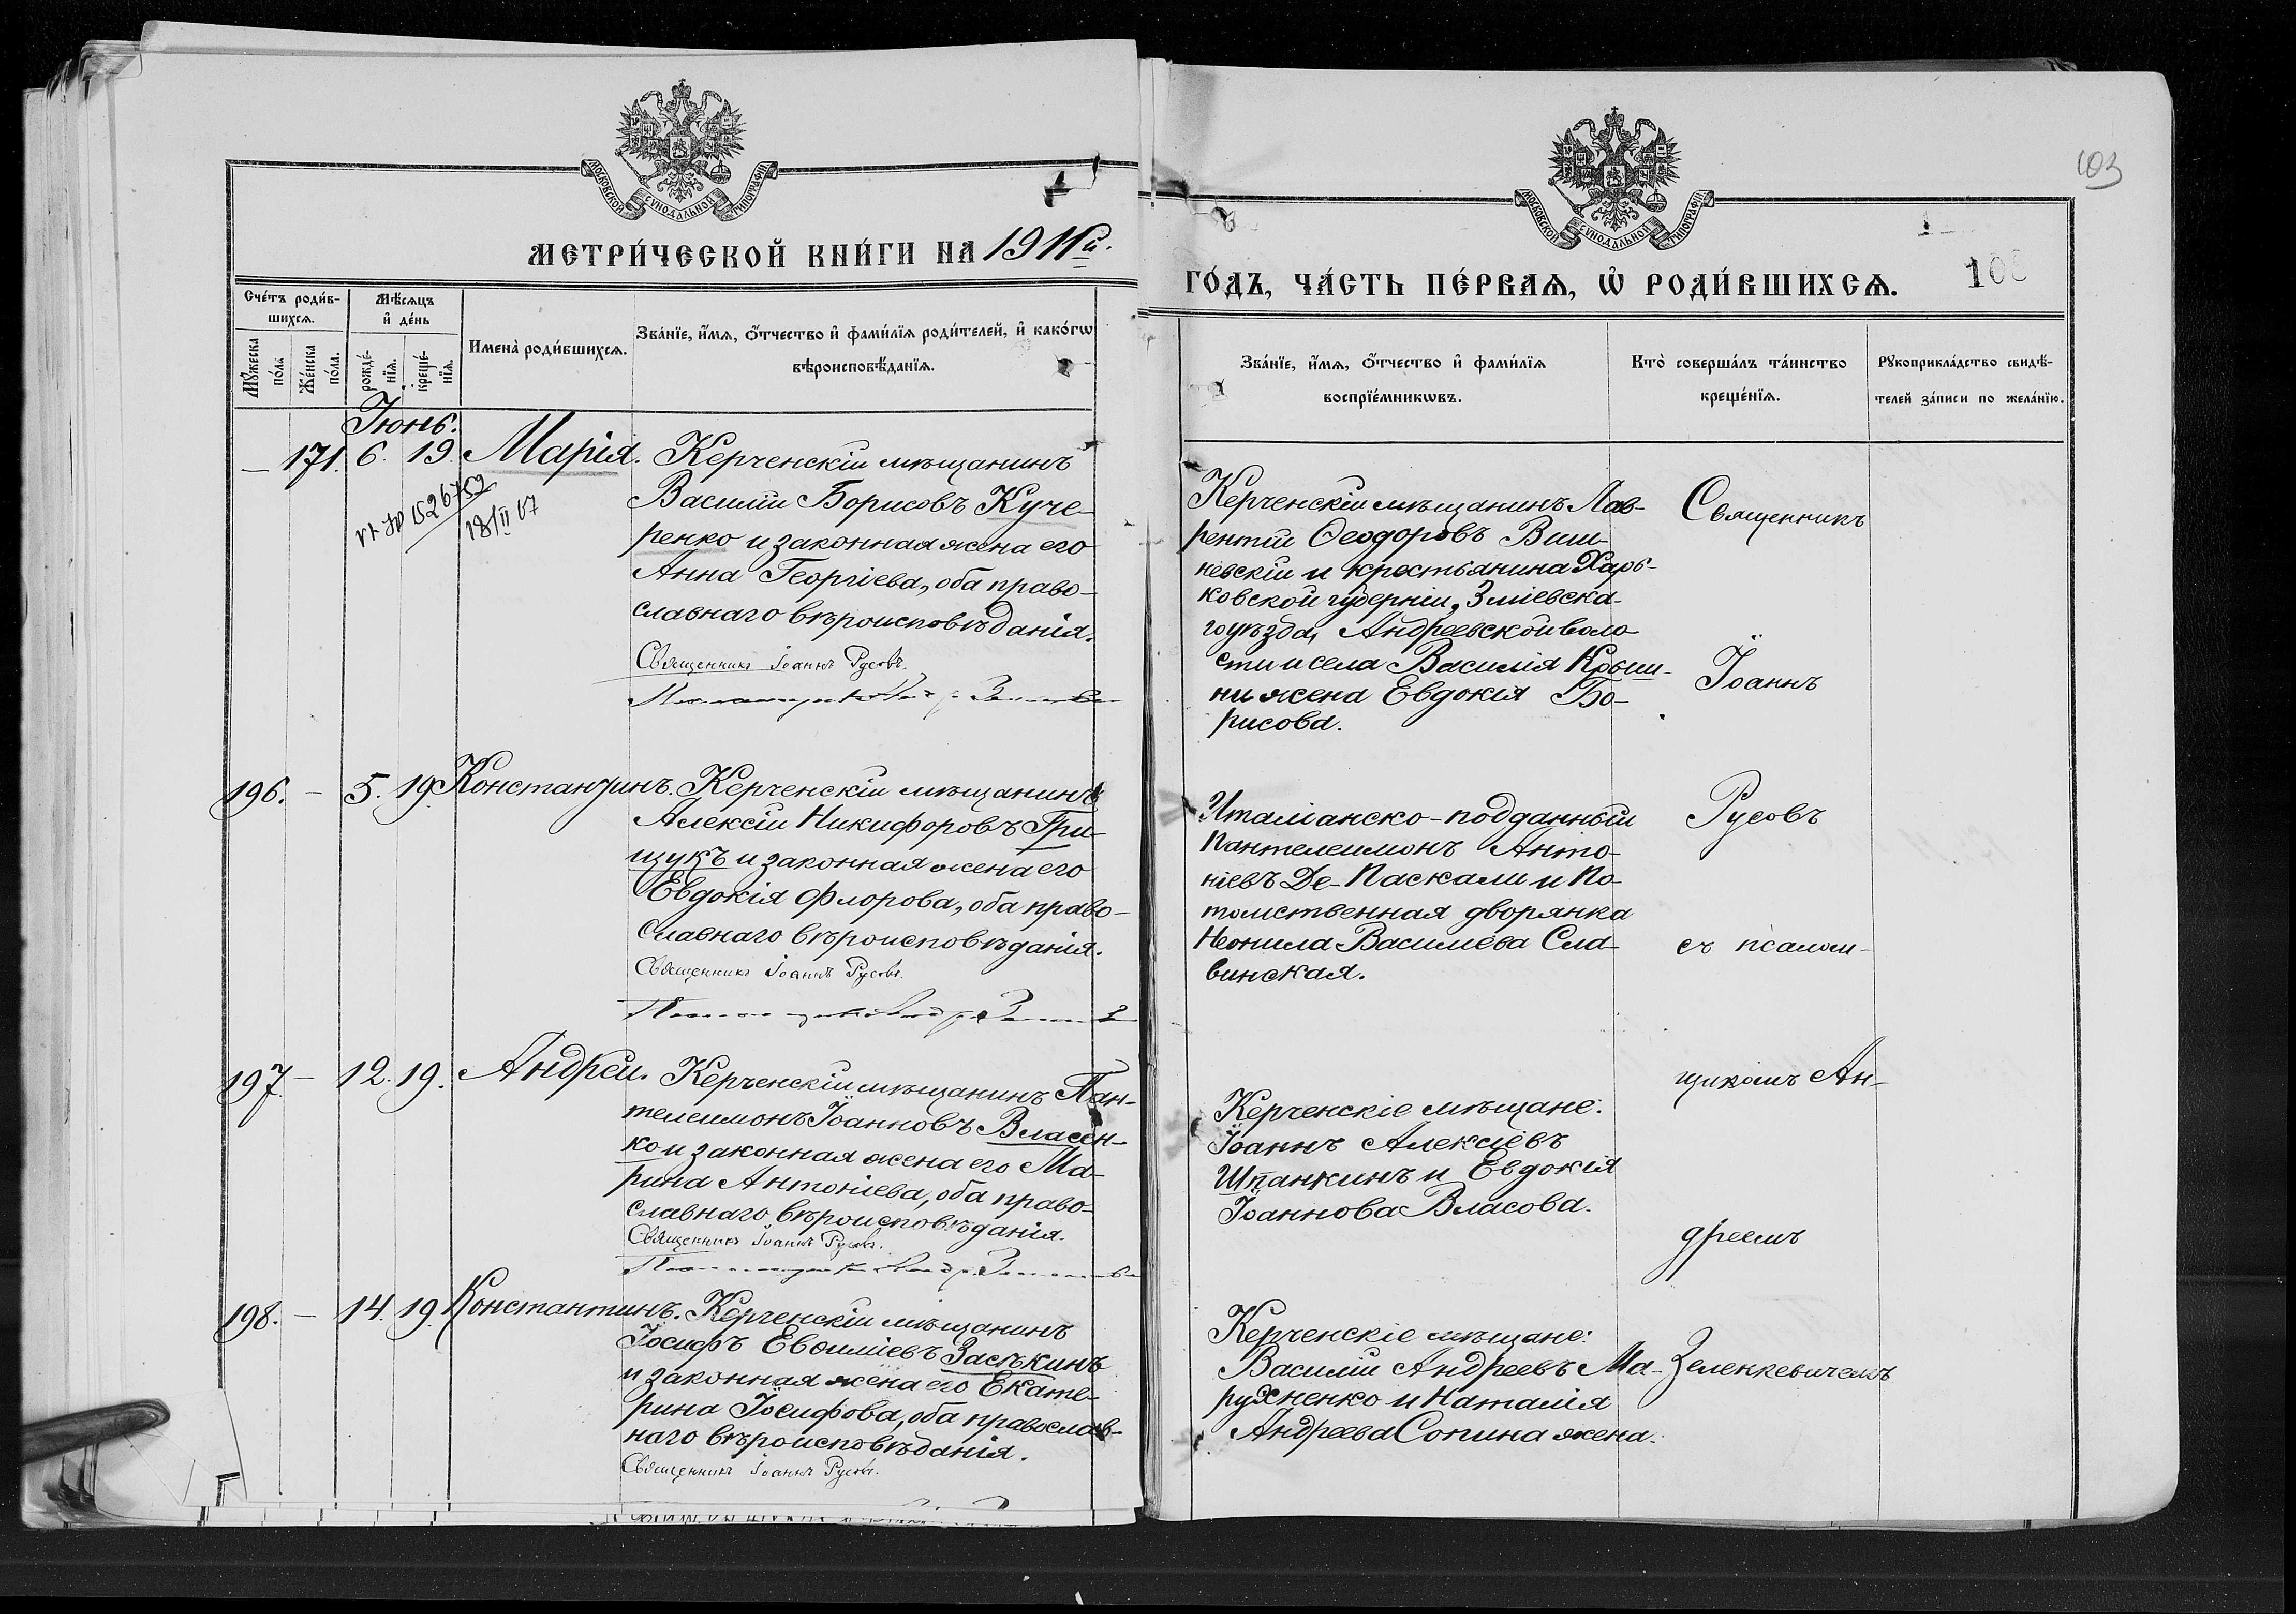 МОСКОВСКОЙ СѴНОДАЛЬНОЙ ТИПОГРАФІИ
МЕТРИ́ЧЕСКОЙ КНИ́ГИ НА 1911й.
Сче́тъ роди́в-
шихсѧ.
Мѣ́сѧцъ
и҆ де́нь
Мꙋ́жеска
по́ла
Же́нска
по́ла.
рожде́-
нїѧ.
креще́-
нїѧ.
Имена̀ роди́вшихсѧ.
Зва́нїе, и҆́мѧ, ѻ҆́тчество и҆ фами́лїѧ роди́телей, и҆ како́гѡ
вѣроисповѣ́данїѧ.
Іюнь.
— 171. 6. 19. Марія. Керченскій мѣщанинъ
Василій Борисовъ Куче-
ренко и законная жена его
Анна Георгіева, оба право-
славнаго вѣроисповѣданія.
Священникъ Іоаннъ Русовъ.
152 6752
18/II 67
196. — 5. 19. Константинъ. Керченскій мѣщанинъ
Алексій Никифоровъ Гри-
щукъ и законная жена его
Евдокія Флорова, оба право-
славнаго вѣроисповѣданія.
Священникъ Іоаннъ Русовъ.
197 — 12. 19. Андрей. Керченскій мѣщанинъ Пан-
телеимонъ Іоанновъ Власен-
ко и законная жена его Ма-
рина Антоніева, оба право-
славнаго вѣроисповѣданія.
Священникъ Іоаннъ Русовъ.
198. — 14. 19. Константинъ. Керченскій мѣщанинъ
Іосифъ Евѳиміевъ Засѣкинъ
и законная жена его Екате-
рина Іосифова, оба православ-
наго вѣроисповѣданія.
Священникъ Іоаннъ Русовъ.
103
МОСКОВСКОЙ СѴНОДАЛЬНОЙ ТИПОГРАФІИ
ГО́ДЪ, ЧА́СТЬ ПЕ́РВАѦ, Ѡ҆ РОДИ́ВШИХСѦ.
Зва́нїе, и҆́мѧ, ѻ҆́тчество и҆ фами́лїѧ
воспрїе́мникѡвъ.
Кто̀ соверша́лъ та́инство
креще́нїѧ.
Рꙋкоприкла́дство свидѣ́-
телей за́писи по жела́нїю.
Керченскій мѣщанинъ Лав-
рентій Ѳеодоровъ Виш-
невскій и крестьянина Харь-
ковской губерніи, Зміевска-
го уѣзда, Андреевской воло-
сти и села Василія Крыш-
ни жена Евдокія Бо-
рисова.
Священникъ
Іоаннъ
Италіанско-подданный
Пантелеимонъ Анто-
ніевъ Де-Паскали и По-
томственная дворянка
Неонила Василіева Сла-
винская.
Русовъ
съ псалом-
Керченскіе мѣщане:
Іоаннъ Алексіевъ
Шпанкинъ и Евдокія
Іоаннова Власова.
щикомъ Ан-
дреемъ
Керченскіе мѣщане:
Василій Андреевъ Ма-
рухненко и Наталія
Андреева Сопина жена.
Зеленкевичемъ